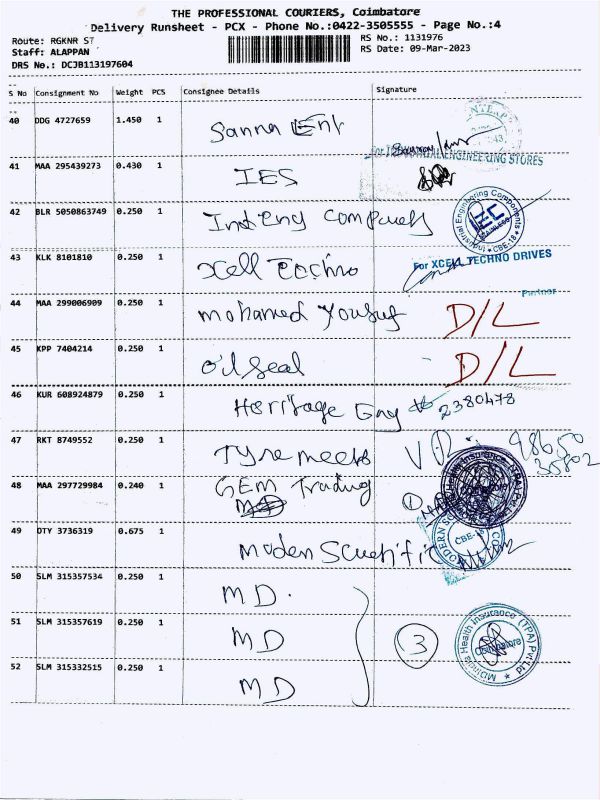 THE PROFESSIONAL COURIERS, Coimbatore
Delivery Runsheet - PCX - Phone No.:0422-3505555 - Page No.:4
Route: RGKNR ST
RS No.: 1131976
Staff: ALAPPAN
RS Date: 09-Mar-2023
DRS No.: DCJB113197604
S No Consignment No Weight PCS Consignee Details Signature
40 DDG 4727659 1.450 1 Sanna Ent
ENGINEERING STORES
41 MAA 295439273 0.430 1 IES
42 BLR 5050863749 0.250 1 Ind Eng
Industrial Engineering Components
IEC
CBE-18
43 KLK 8101810 0.250 1 Xcell Techno
For XCELL TECHNO DRIVES
Partner
44 MAA 299006909 0.250 1 Mohamed Yousuf D/L
45 KPP 7404214 0.250 1 Oil Seal D/L
46 KUR 608924879 0.250 1 Heritage Eng 2380478
47 RKT 8749552 0.250 1 Tyre meets 98650
35802
48 MAA 297729984 0.240 1 GEM Trading
MD
1
49 DTY 3736319 0.675 1 Moden Scientific
MODERN
CBE-18
50 SLM 315357534 0.250 1 MD.
51 SLM 315357619 0.250 1 MD 3
MDIndia Health Insurance (TPA) Pvt Ltd
Coimbatore
52 SLM 315332515 0.250 1 MD